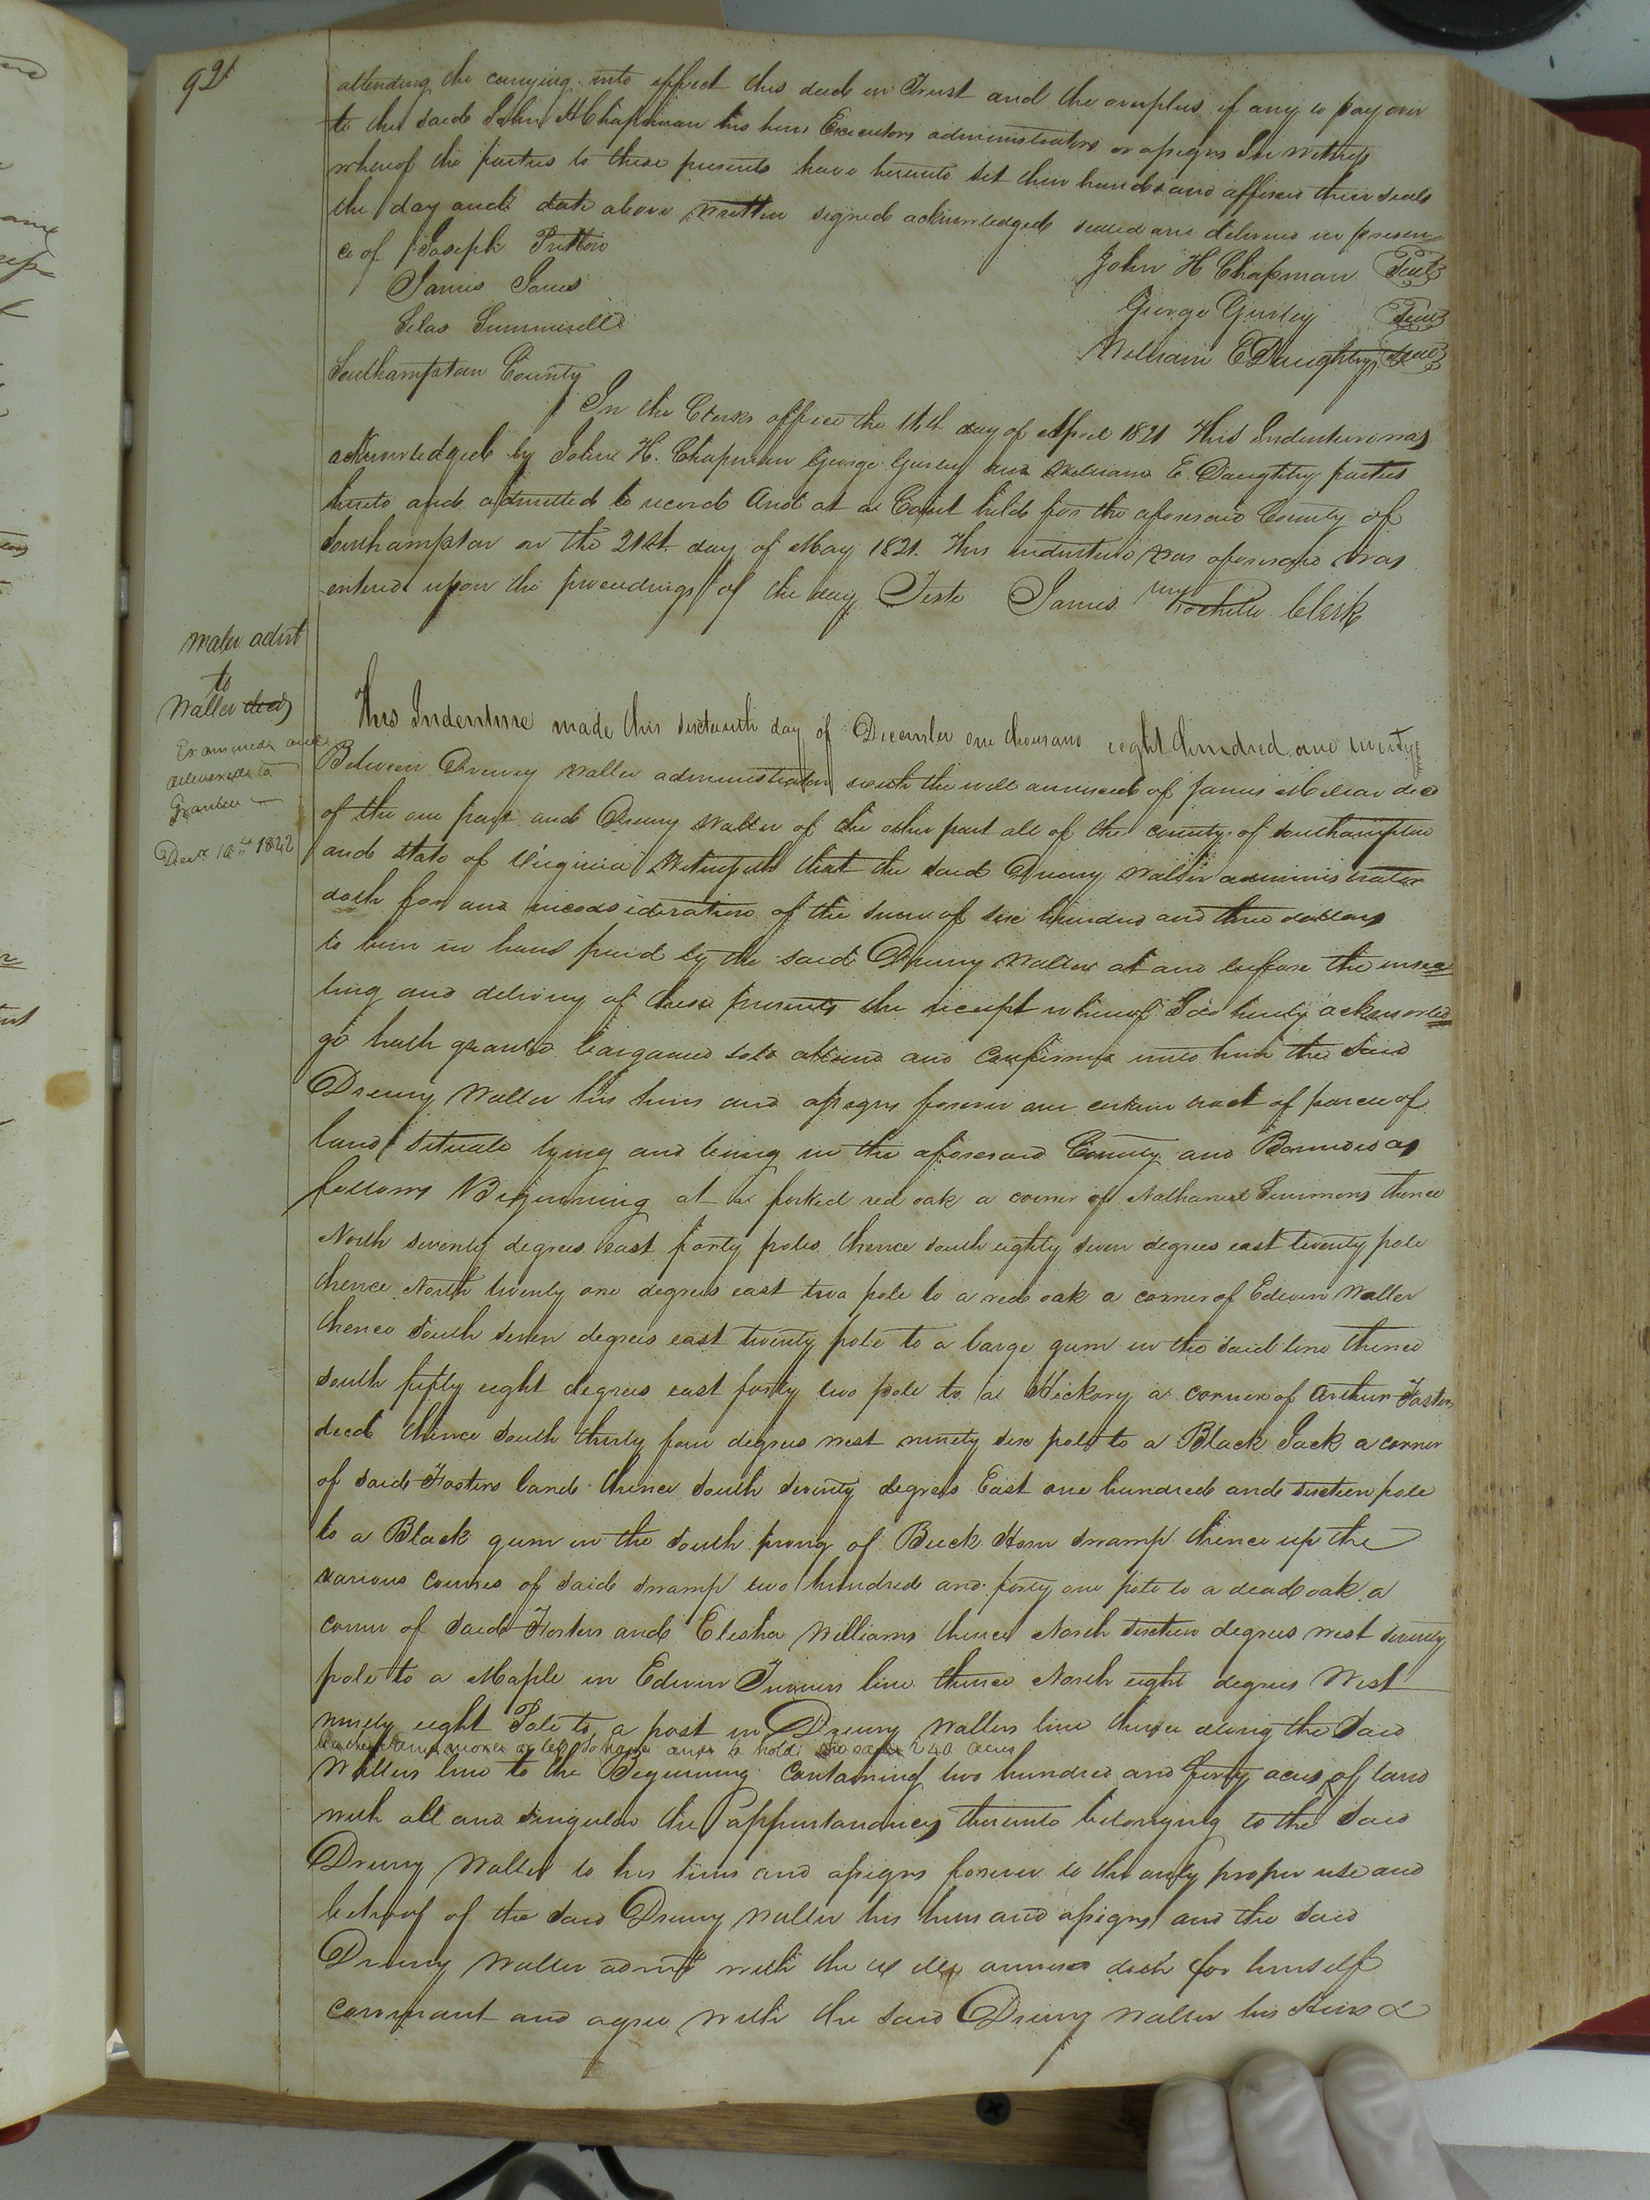 92
attending the carrying into effect this deed in Trust and the overplus if any to pay over
to the said John H Chapman his heirs Executors administrators or assigns In witness
whereof the parties to these presents have hereunto set their hands and affixed their seals
the day and date above written signed acknowledged sealed and delivered in presen
ce of Joseph Pretlow
James Jones
Silas Summerell
John H Chapman Seal
George Gurley Seal
William E Daughtry Seal
Southampton County
In the Clerks office the 11th day of April 1821 This Indenture was
acknowledged by John H. Chapman George Gurley and William E. Daughtry parties
hereto and admitted to record And at a Court held for the aforesaid County of
Southampton on the 21st day of May 1821. This indenture was aforesaid was
entered upon the proceedings of the day Teste James Rochelle Clerk
Waller admt
to
Waller deed
Examined and
delivered to
Grantee
Decr 1822
This Indenture made this sixteenth day of December one thousand eight hundred and twenty
Between Drewry Waller administrator with the will annexed of James dec
of the one part and Drewry Waller of the other part all of the county of Southampton
and State of Virginia Witnesseth that the said Drewry Waller administrator
doth for and inconsideration of the sum of six hundred and three dollars
to him in hand paid by the said Drewry Waller at and before the ensea
ling and delivery of these presents the receipt whereof I do hereby acknowled
ge hath granted bargained sold aliend and Confirmed unto him the said
Drewry Waller his heirs and assigns forever one certain tract of parcel of
land situate lying and being in the aforesaid County and Bounded as
follows Beginning at a forked red oak a corner of Nathaniel Simmons thence
North seventy degrees east forty poles thence south eighty seven degrees east twenty pole
thence North twenty one degrees east two pole to a red oak a corner of Edwin Waller
thence South seven degrees east twenty pole to a large gum in the said line thence
South fifty eight degrees east forty two pole to a Hickory a corner of Arthur Foster
decd thence South thirty four degrees west ninety six pole to a Black Jack a corner
of said Fosters land thence South seventy degrees East one hundred and sixteen pole
to a Black gum in the South prong of Buck Horn Swamp thence up the
various courses of said swamp two hundred and forty one pole to a dead oak a
corner of said Fosters and Elisha Williams thence North sixteen degrees west seventy
pole to a Maple in Edwin Turners line thence North eight degrees West
ninety eight Pole to a post in Drewry Wallers line thence along the said
more or less to have and to hold the said 240 acres
Wallers line to the Beginning Containing two hundred and forty acres of land
with all and singular the appurtanances thereunto belonging to the said
Drewry Waller to his heirs and assigns forever to the only proper use and
behoof of the said Drewry Waller his heirs and assigns and the said
Drewry Waller admt with the will annexed doth for himself
convenant and agree with the said Drewry Waller his Heirs &